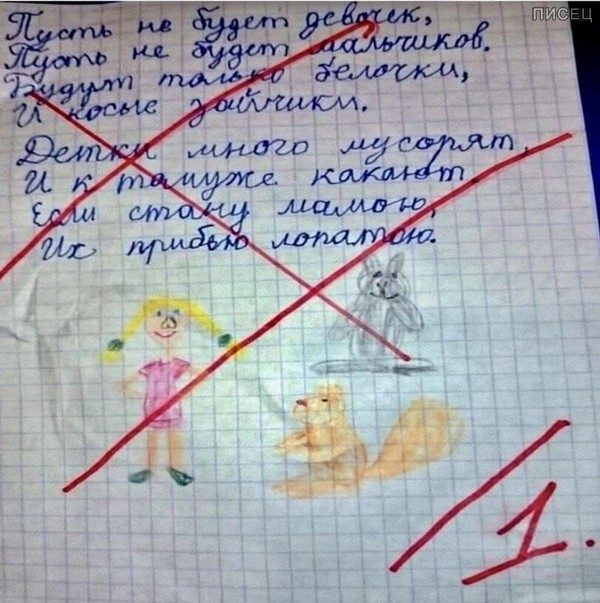 ПИСЕЦ
Пусть не будет девочек,
Пусть не будет мальчиков.
Будут только белочки,
И косые зайчики.
Детки много мусорят
И к томуже какают
Если стану мамою,
Их прибью лопатою.
1.